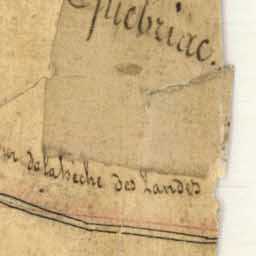 Québriac.
de la bèche des Landes